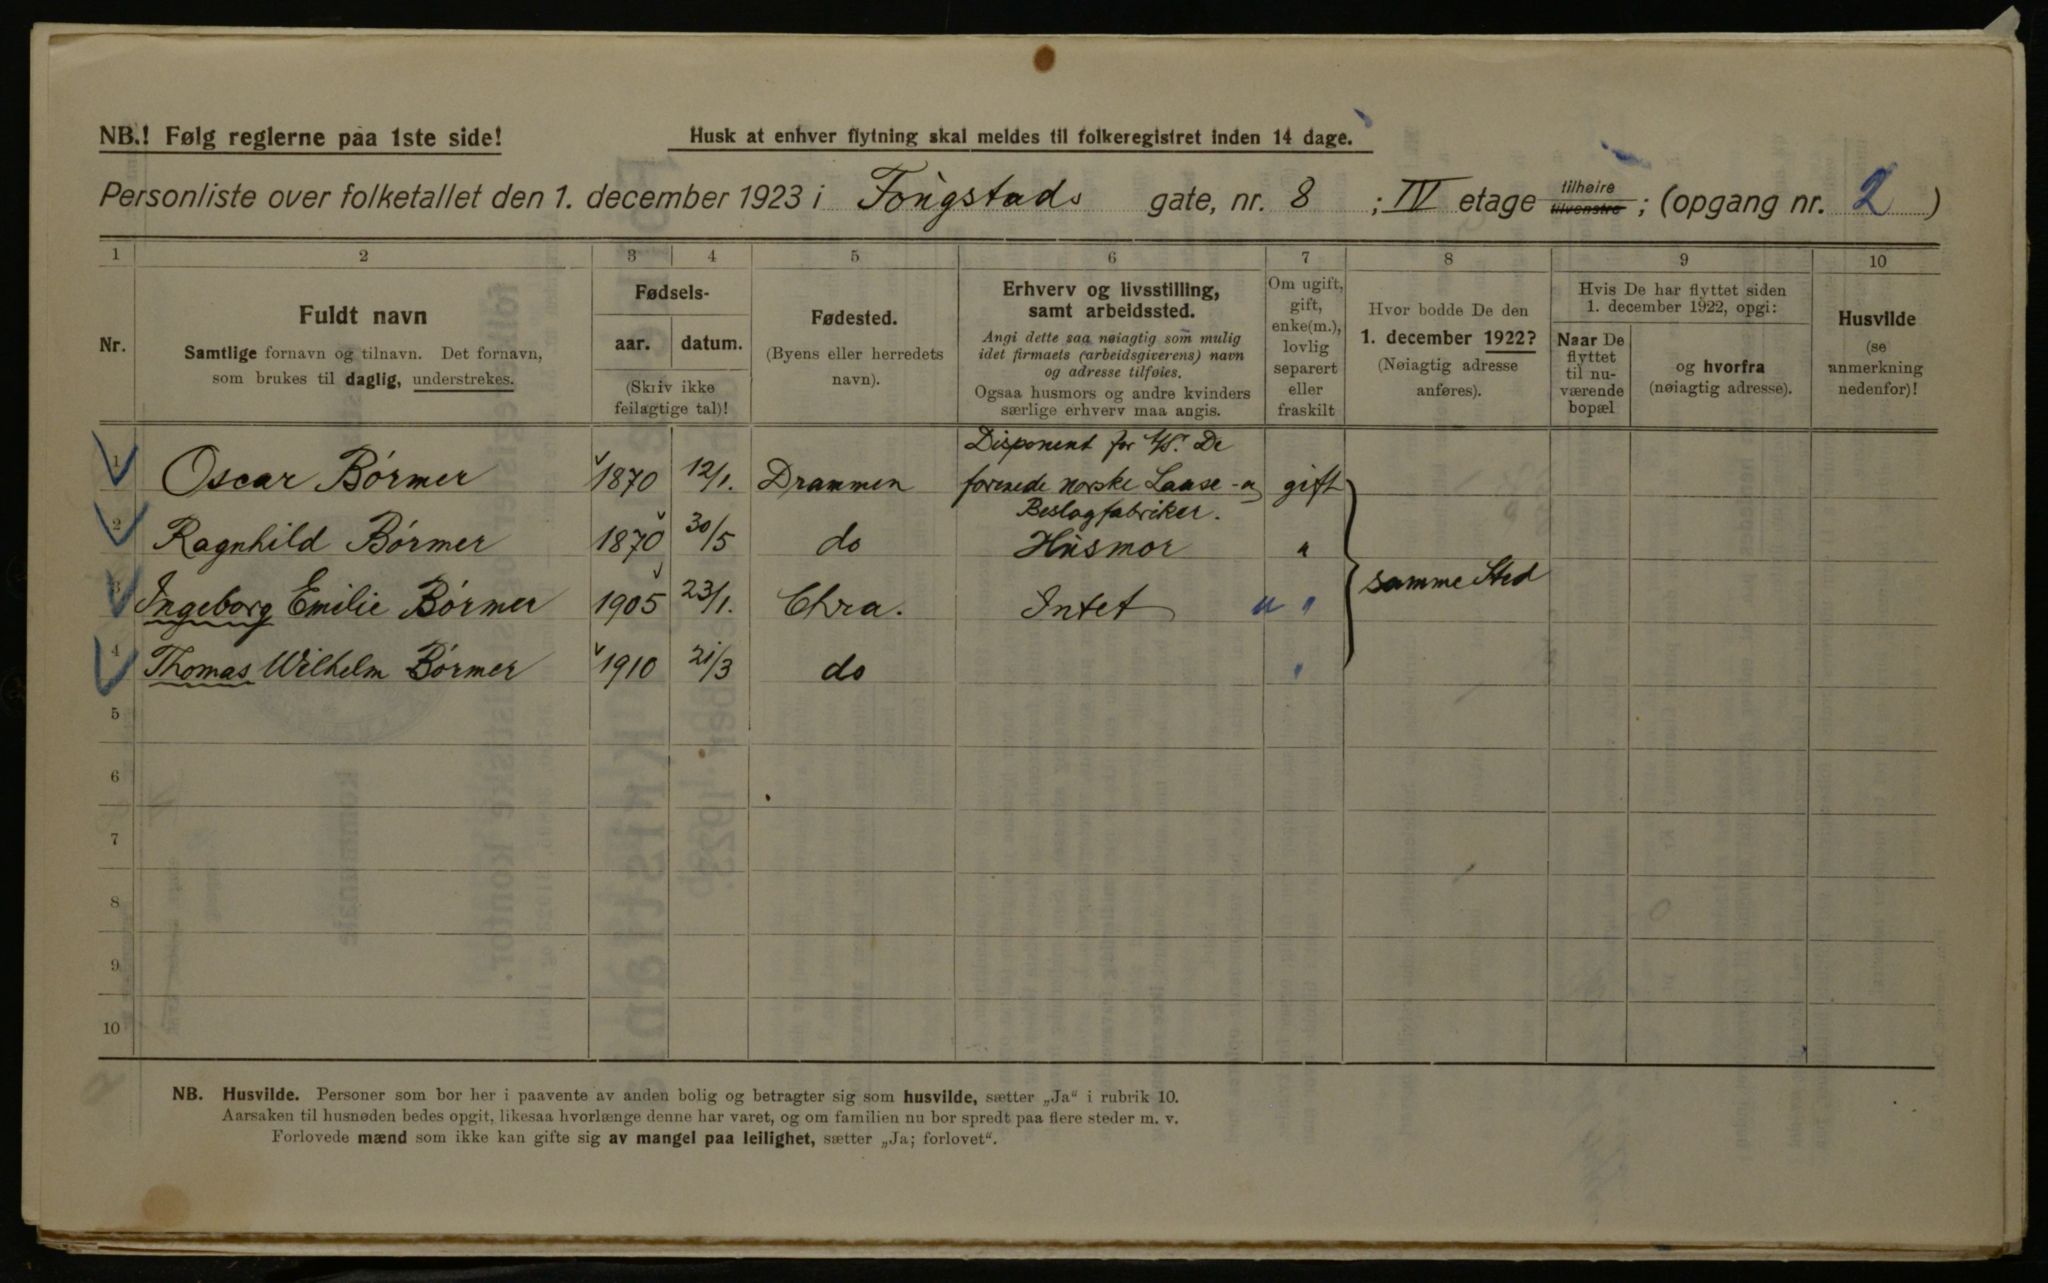 NB.! Følg reglerne paa 1ste side!
Husk at enhver flytning skal meldes til folkeregistret inden 14 dage.
Personliste over folketallet den 1. december 1923 i Fougstads gate, nr. 8 ; IV etage tilhøire tilvenstre ; (opgang nr. 2 )
1 2 3 4 5 6 7 8 9 10
Nr.
Fuldt navn
Samtlige fornavn og tilnavn. Det fornavn,
som brukes til daglig, understrekes.
Fødsels-
aar. datum.
(Skriv ikke
feilagtige tal)!
Fødested.
(Byens eller herredets
navn).
Erhverv og livsstilling,
samt arbeidssted.
Angi dette saa nøiagtig som mulig
idet firmaets (arbeidsgiverens) navn
og adresse tilføies.
Ogsaa husmors og andre kvinders
særlige erhverv maa angis.
Om ugift,
gift,
enke(m.),
lovlig
separert
eller
fraskilt
Hvor bodde De den
1. december 1922?
(Nøiagtig adresse
anføres).
Hvis De har flyttet siden
1. december 1922, opgi:
Naar De
flyttet
til nu-
værende
bopæl
og hvorfra
(nøiagtig adresse).
Husvilde
(se
anmerkning
nedenfor)!
Disponent for A/S. De
1 Oscar Børmer 1870 12/1. Drammen forenede norske Laase- og gift
Beslagfabriker.
2 Ragnhild Børmer 1870 30/5 do Husmor "
samme Sted
3 Ingeborg Emilie Børmer 1905 23/1. Chra. Intet u "
4 Thomas Wilhelm Børmer 1910 21/3 do
5
6
7
8
9
10
NB. Husvilde. Personer som bor her i paavente av anden bolig og betragter sig som husvilde, sætter „Ja“ i rubrik 10.
Aarsaken til husnøden bedes opgit, likesaa hvorlænge denne har varet, og om familien nu bor spredt paa flere steder m. v.
Forlovede mænd som ikke kan gifte sig av mangel paa leilighet, sætter „Ja; forlovet“.